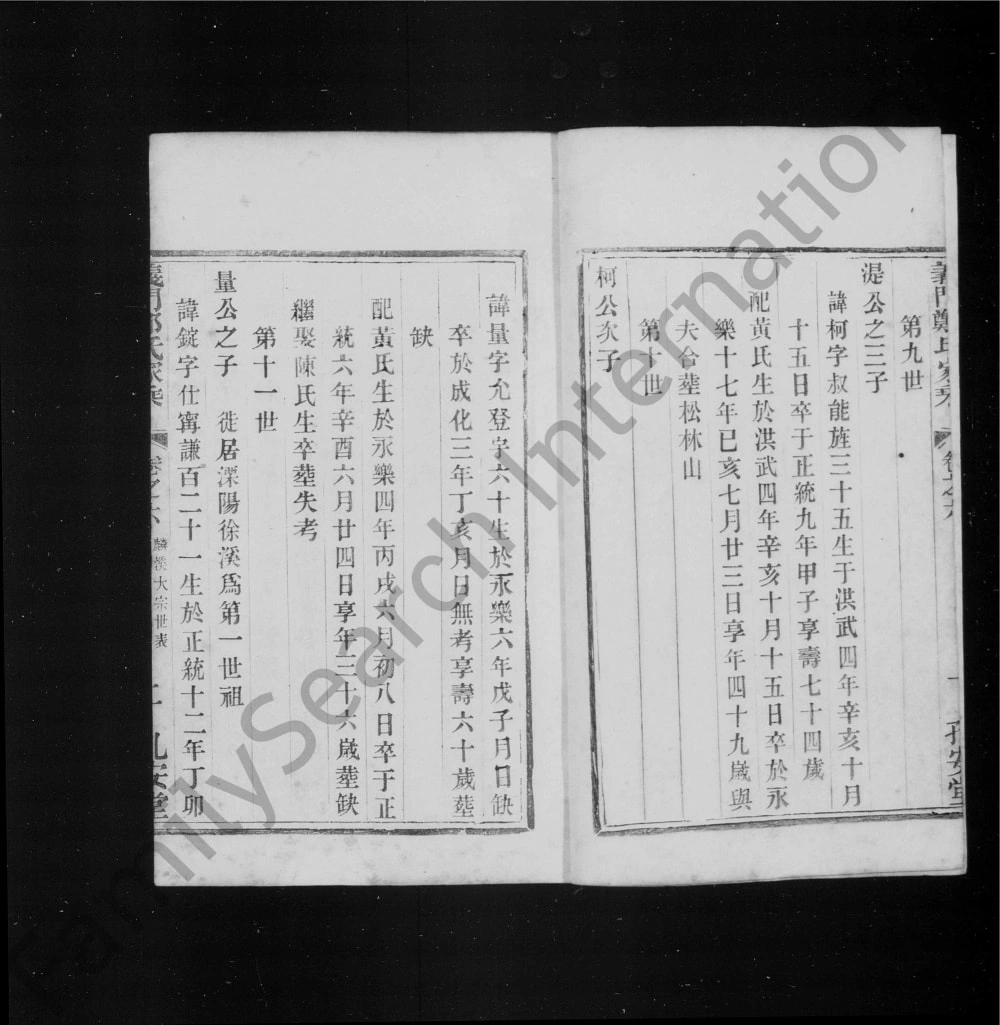 義門鄭氏家乘
卷之六
第九世
湜公之三子
諱柯字叔能旌三十五生于洪武四年辛亥十月
十五日卒于正統九年甲子享壽七十四歲
配黃氏生於洪武四年辛亥十月十五日卒於永
樂十七年已亥七月廿三日享年四十九歲與
夫合塟松林山
第十世
柯公次子
諱量字允登字六十生於永樂六年戊子月日缺
卒於成化三年丁亥月日無考享壽六十歲塟
缺
配黃氏生於永樂四年丙戌六月初八日卒于正
統六年辛酉六月廿四日享年三十六歲塟缺
繼娶陳氏生卒塟失考
第十一世
量公之子 徙居溧陽徐溪爲第一世祖
諱錠字仕寗謙百二十一生於正統十二年丁卯
義門鄭氏家乘
卷之六
麟溪大宗世表
二
FamilySearch International